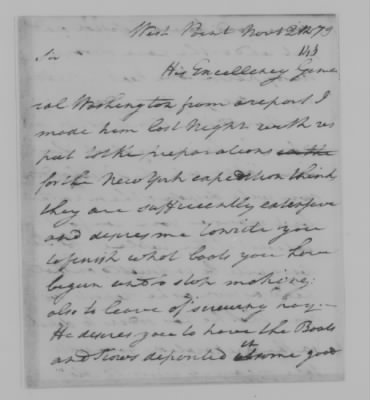 West Point Novr 2th 79
143
Sir
His Excellency Gene
ral Washington from a report I
made him last Night with res
pect to the preparations on the
for the New York expedition think
they are sufficiently extensive
and desires me to write you
to finish what boats you have
begun and to stop making;
also to leave of
He desires you to have the Boats
and Scows deposited in some good